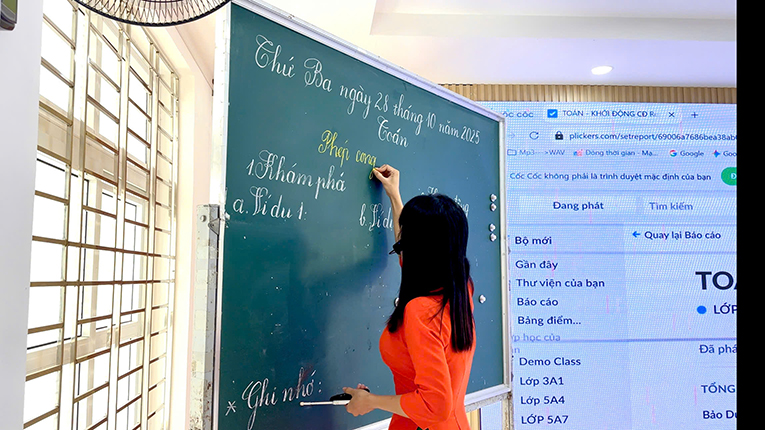 Thứ Ba ngày 28 tháng 10 năm 2025
Toán
Phép cộng
1. Khám phá
a. Ví dụ 1:
b. Ví dụ
* Ghi nhớ:
cốc cốc
TOÁN - KHỞI ĐỘNG CĐ
plickers.com/setreport/69006a7686bea38ab
Mp3--->WAV
Đồng thời gian - Ma...
Google
Google
Cốc Cốc không phải là trình duyệt mặc định của bạn
Đang phát
Tìm kiếm
Bộ mới
← Quay lại Báo cáo
Gần đây
Thư viện của bạn
Báo cáo
Bảng điểm...
lớp học của
Demo Class
Lớp 3A1
Lớp 5A4
LỚP 5A7
TOÁ
LỚP
Đã phá
TỔNG
Báo